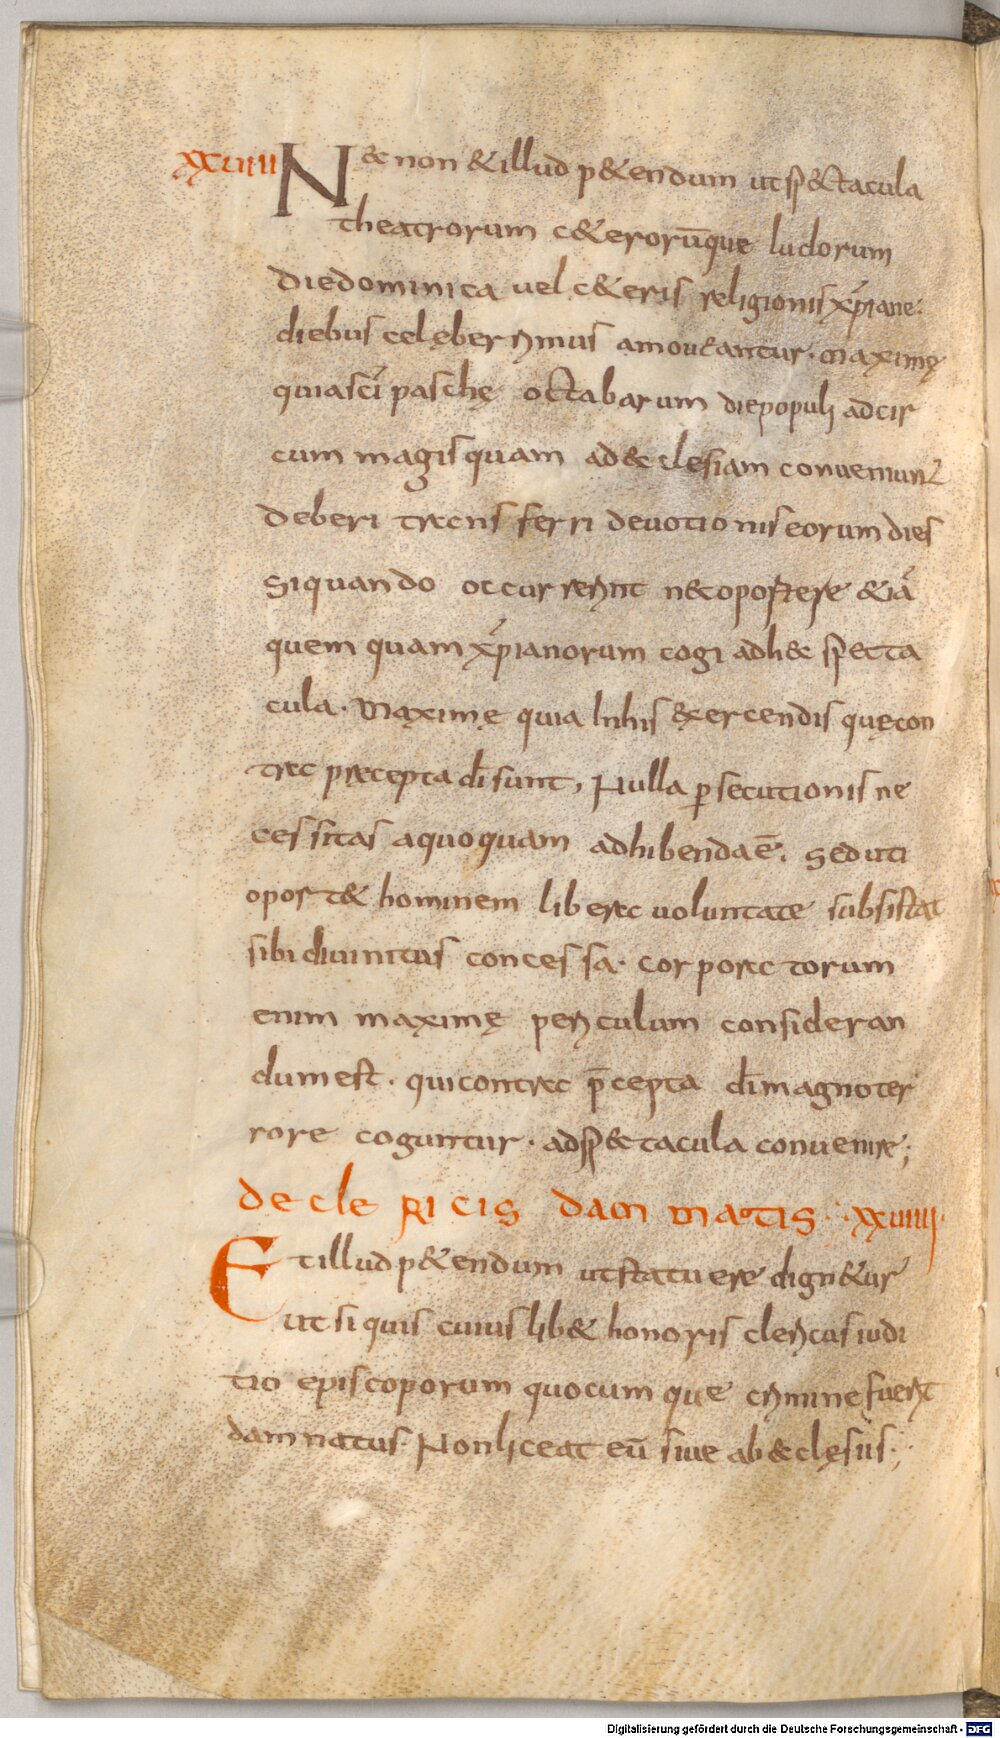 xxuiiii N& non & illud p&endum ut sp&tacula
theatrorum c&erorūque ludorum
die dominica uel c&eris religionis xp̄iane.
diebus celęberrimus amoueantur. maximę
quia sc̄i paschę octabarum die populi ad cir
cum magis quam ad &clesiam conueniunt
deberi transferri deuotionis eorum dies
si quando occurrerint n& oportere &iā
quem quam xp̄ianorum cogi ad h& specta
cula. Maximę quia In his exercendis quę con
tra precepta dī sunt, Nulla persecutionis ne
cessitas a quoquam adhibenda ē. sed uti
oport& hominem libera uoluntate subsistat
sibi diuinitus concessa. corporatorum
enim maximę periculum consideran
dum est. qui contra p̄cepta dī magno ter
rore coguntur. ad sp&tacula conuenire;
de clericis dammatis. xxuiiii.
Et illud p&endum ut statuere dign&ur
ut si quis cuius lib& honoris clericus iudi
tio episcoporum quocumque crimine fuerit
damnatus. Non liceat eū siue ab &clęsiis;
Digitalisierung gefördert durch die Deutsche Forschungsgemeinschaft - DFG